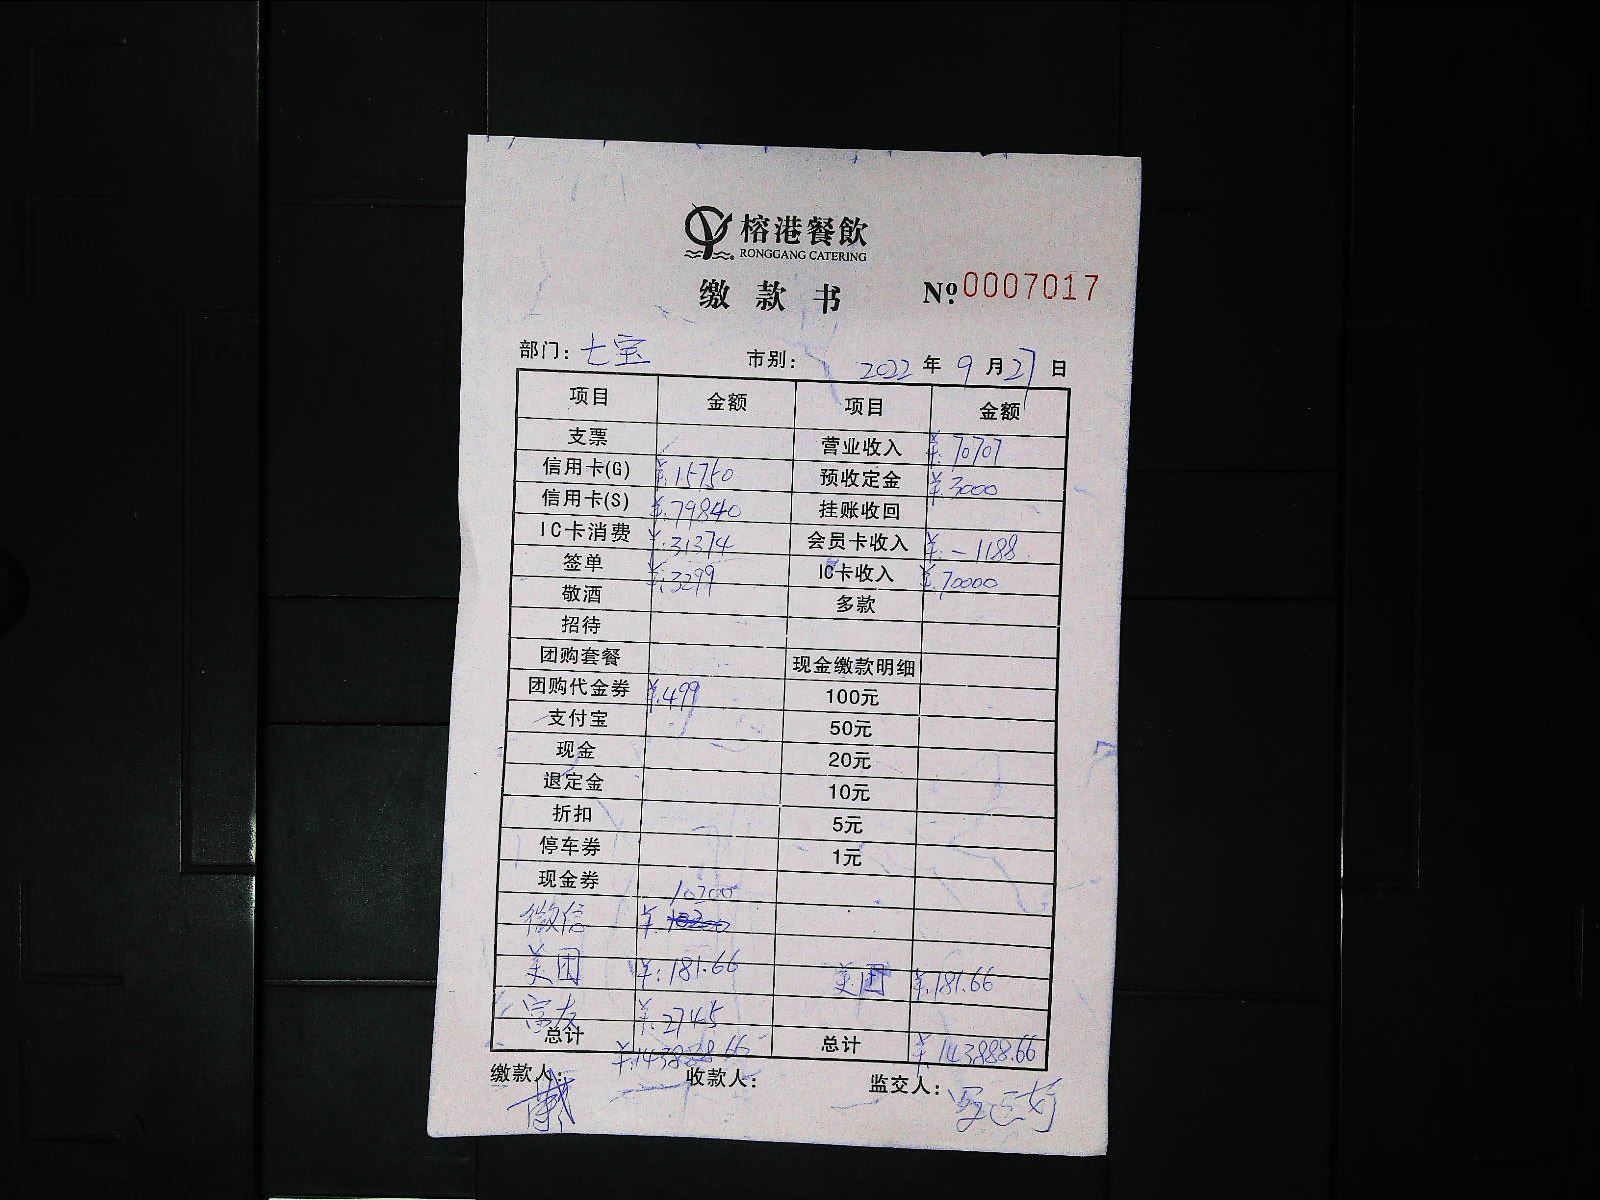 榕港餐飲
RONGGANG CATERING
缴款书 №:0007017
部门: 七宝 市别: 2022 年 9 月 27 日
项目 金额 项目 金额
支票 营业收入 ¥.70707
信用卡(G) ¥.15750 预收定金 ¥.3000
信用卡(S) ¥.79840 挂账收回
IC卡消费 ¥.31374 会员卡收入 ¥.-1188
签单 ¥.3299 IC卡收入 ¥.70000
敬酒 多款
招待
团购套餐 现金缴款明细
团购代金券 ¥.499 100元
支付宝 50元
现金 20元
退定金 10元
折扣 5元
停车券 1元
现金券
微信 ¥. 10200
美团 ¥:181.66 美团 ¥.181.66
¥.2745
总计 ¥.143888.66 总计 ¥143888.66
缴款人: 戴 收款人: 监交人: